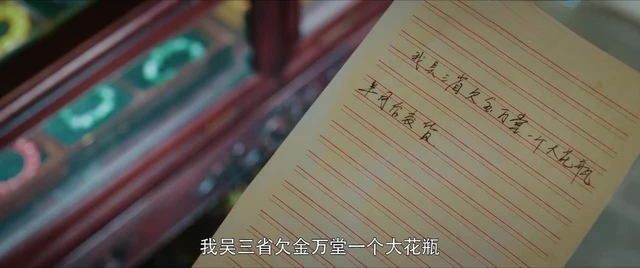 我吴三省欠金万堂一个大花瓶
半月后交货
我吴三省欠金万堂一个大花瓶